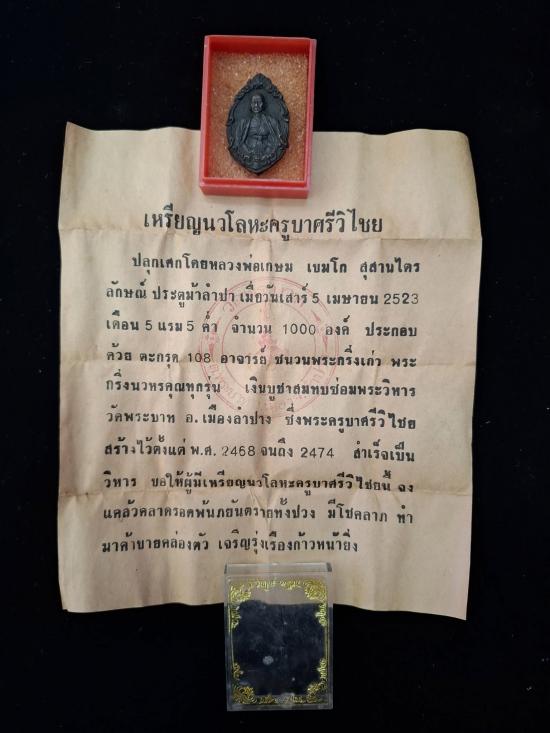 เหรียญนวโลหะครูบาศรีวิไชย
ปลุกเศกโดยหลวงพ่อเกษม เขมโก สุสานไตร
ลักษณ์ ประตูม้าลำปา เมื่อวันเสาร์ 5 เมษายน 2523
เดือน 5 แรม 5 ค่ำ จำนวน 1000 องค์ ประกอบ
ด้วย ตะกรุด 108 อาจารย์ ชนวนพระกริ่งเก่า พระ
กริ่งนวหรคุณทุกรุ่น เงินบูชาสมทบซ่อมพระวิหาร
วัดพระบาท อ. เมืองลำปาง ซึ่งพระครูบาศรีวิไชย
สร้างไว้ตั้งแต่ พ.ศ. 2468 จนถึง 2474 สำเร็จเป็น
วิหาร ขอให้ผู้มีเหรียญนวโลหะครูบาศรีวิไชยนี้ จง
แคล้วคลาดรอดพ้นภยันตรายทั้งปวง มีโชคลาภ ทำ
มาค้าขายคล่องตัว เจริญรุ่งเรืองก้าวหน้ายิ่ง